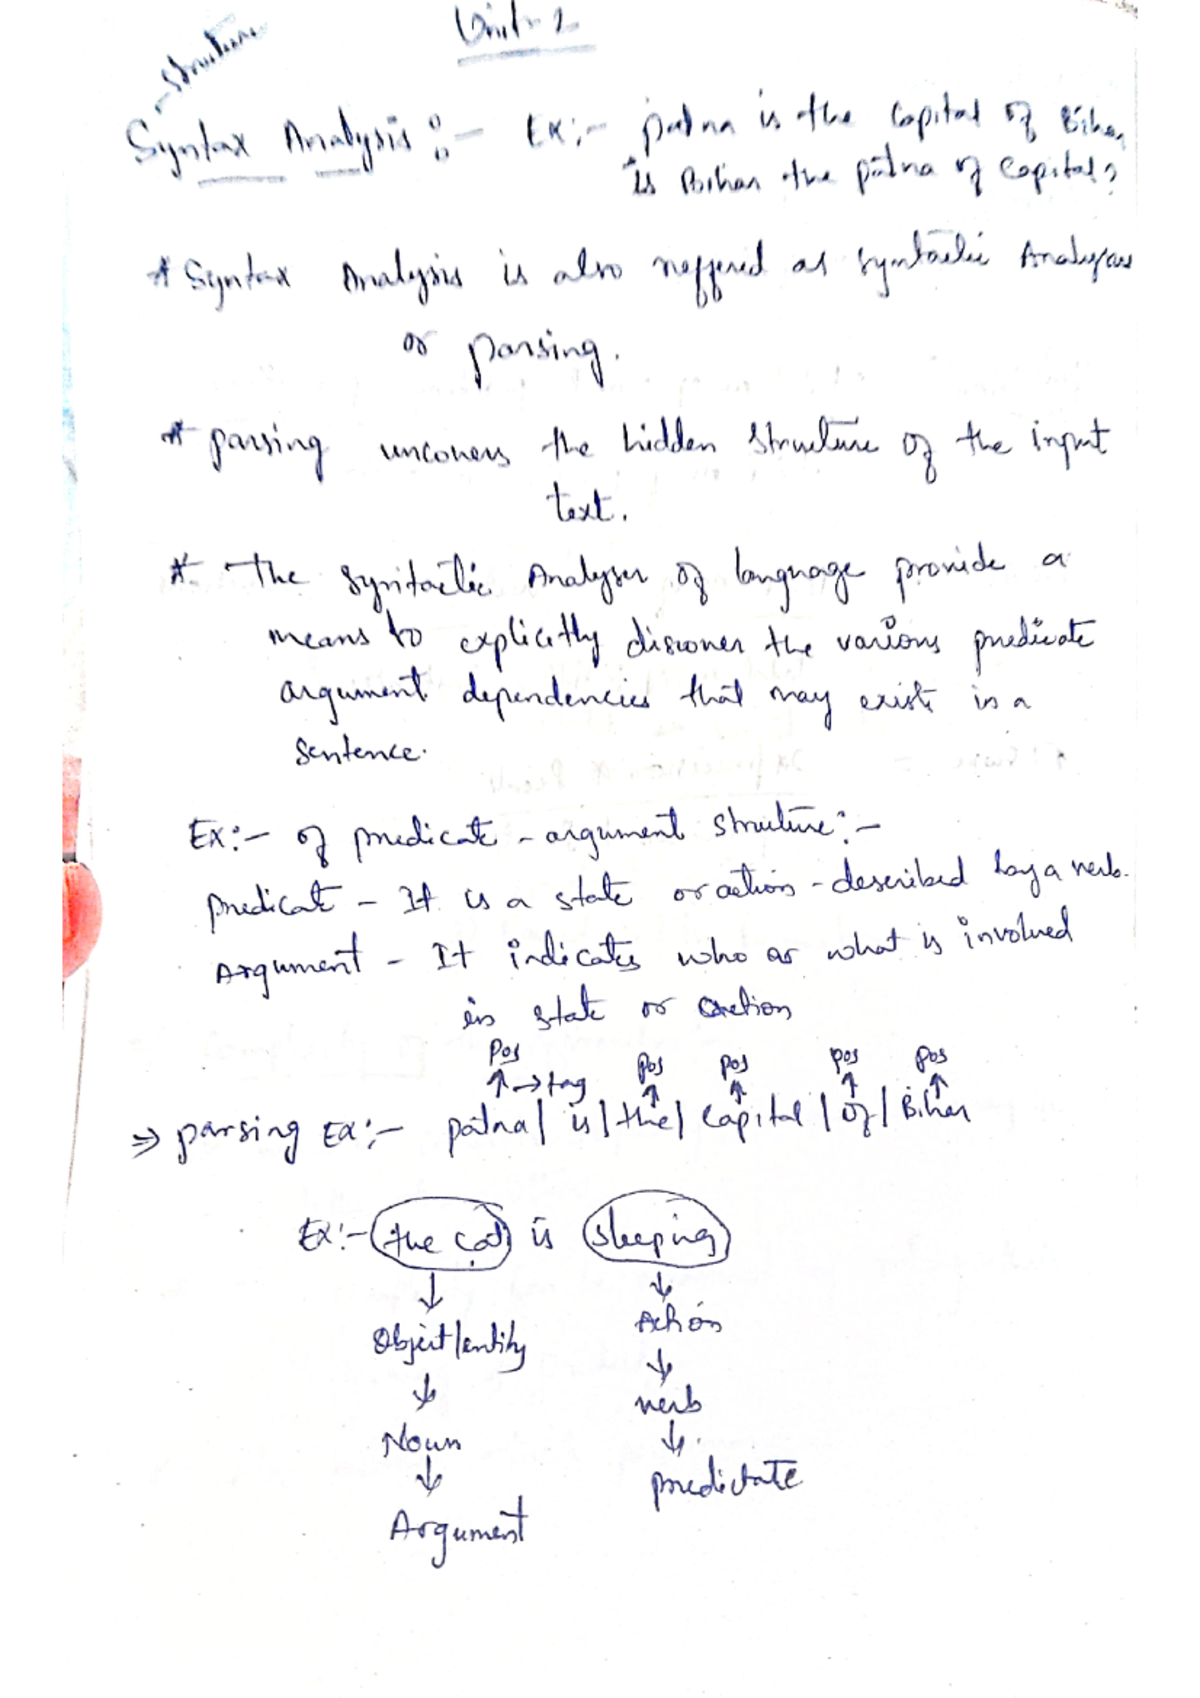 Unit-2
structure
Syntax Analysis :- Ex:- patna is the Capital of Bihar
is Bihar the patna of Capital?
* Syntax Analysis is also reffered as syntactic Analyses
or parsing.
* parsing uncovers the hidden structure of the input
text.
* The syntactic Analyser of language provide a
means to explicitly discover the various predicate
argument dependencies that may exist in a
Sentence.
Ex:- of predicate - argument structure:-
predicat - It is a state or action - described by a verb.
Argument - It indicates who or what is involved
in state or action
Pos Pos Pos pos pos
↑→tag ↑ ↑ ↑ ↑
⇒ parsing Ex:- patna | is | the | Capital | of | Bihar
Ex:- the cat is sleeping
↓ ↓
Object/entity Action
↓ ↓
Noun verb
↓ ↓
Argument predictate